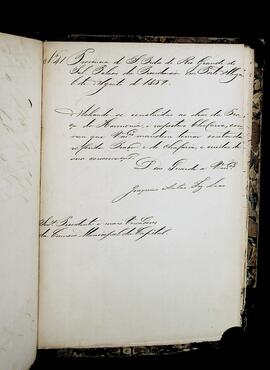 Nº 41 Provincia de S. Pedro do Rio Grande do
Sul Palacio da Presidencia em Porto Alegre
6 de Agosto de 1859.
Achando-se concluidas as obras da Pra-
ça da Harmonia, e respectivo Chafariz, con-
vem que V.mces mandem tomar conta da
referida Praça e do chafariz, e cuidem de
sua conservação.
Deos Guarde a V.mces
Joaquim Antão
Snr.es Presidente e mais Vereadores
da Camara Municipal da Capital.